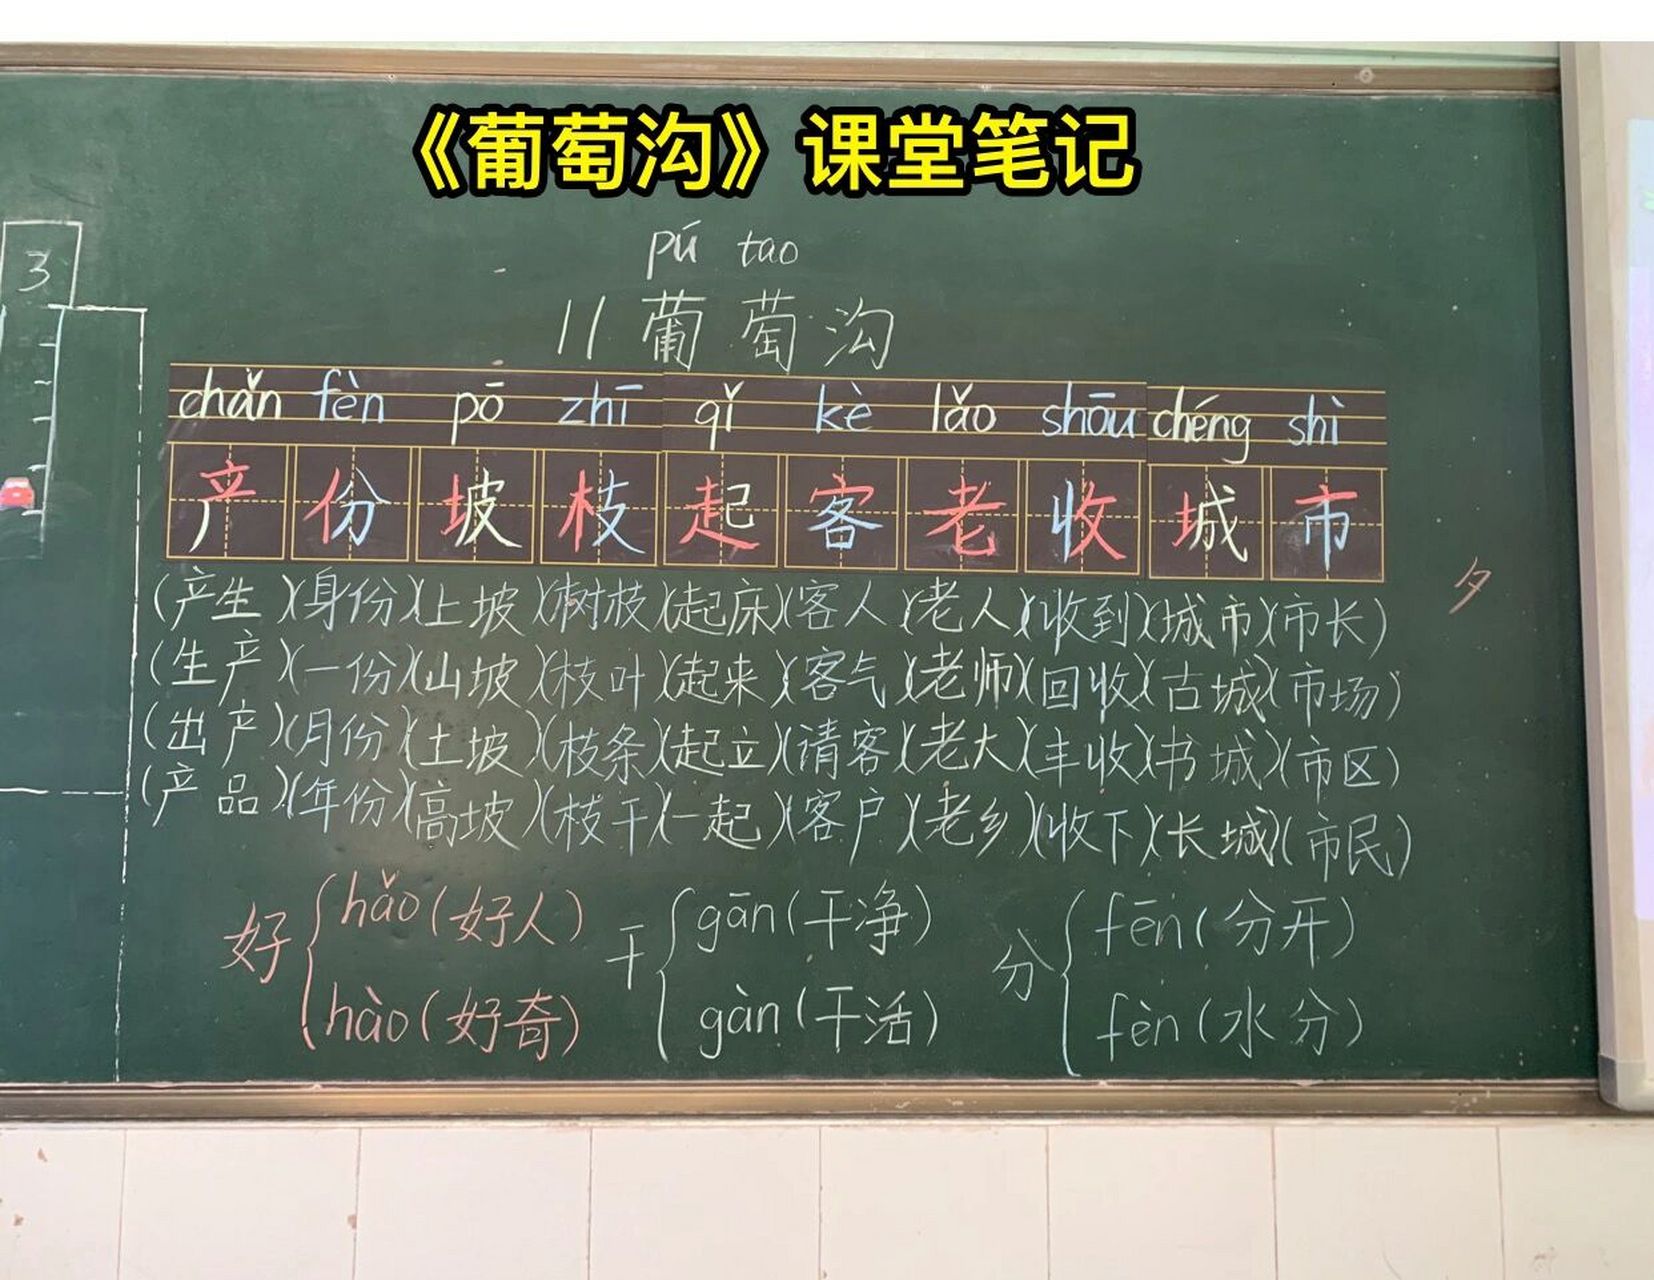 《葡萄沟》课堂笔记
pú tao
11 葡萄沟
3
chǎn fèn pō zhī qǐ kè lǎo shōu chéng shì
产 份 坡 枝 起 客 老 收 城 市
(产生)(身份)(上坡)(树枝)(起床)(客人)(老人)(收到)(城市)(市长)
夕
(生产)(一份)(山坡)(枝叶)(起来)(客气)(老师)(回收)(古城)(市场)
(出产)(月份)(土坡)(枝条)(起立)(请客)(老大)(丰收)(书城)(市区)
(产品)(年份)(高坡)(枝干)(一起)(客户)(老乡)(收下)(长城)(市民)
好 { hǎo(好人) 干 { gān(干净) 分 { fēn(分开)
hào(好奇) gàn(干活) fèn(水分)